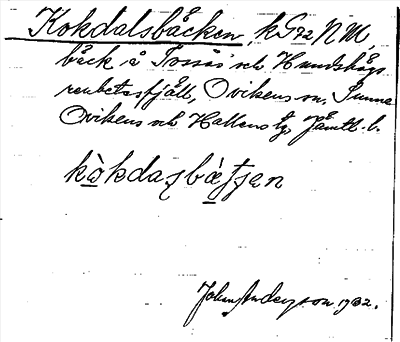 Kokdalsbäcken, k G92 N M,
bäck å Tossås och Hundshögs
renbetesfjäll, Ovikens sn, Sunne
Ovikens och Hallens tg, Jämtl. l.
kòkdaʂbàtʃen
John Anderson 1932.